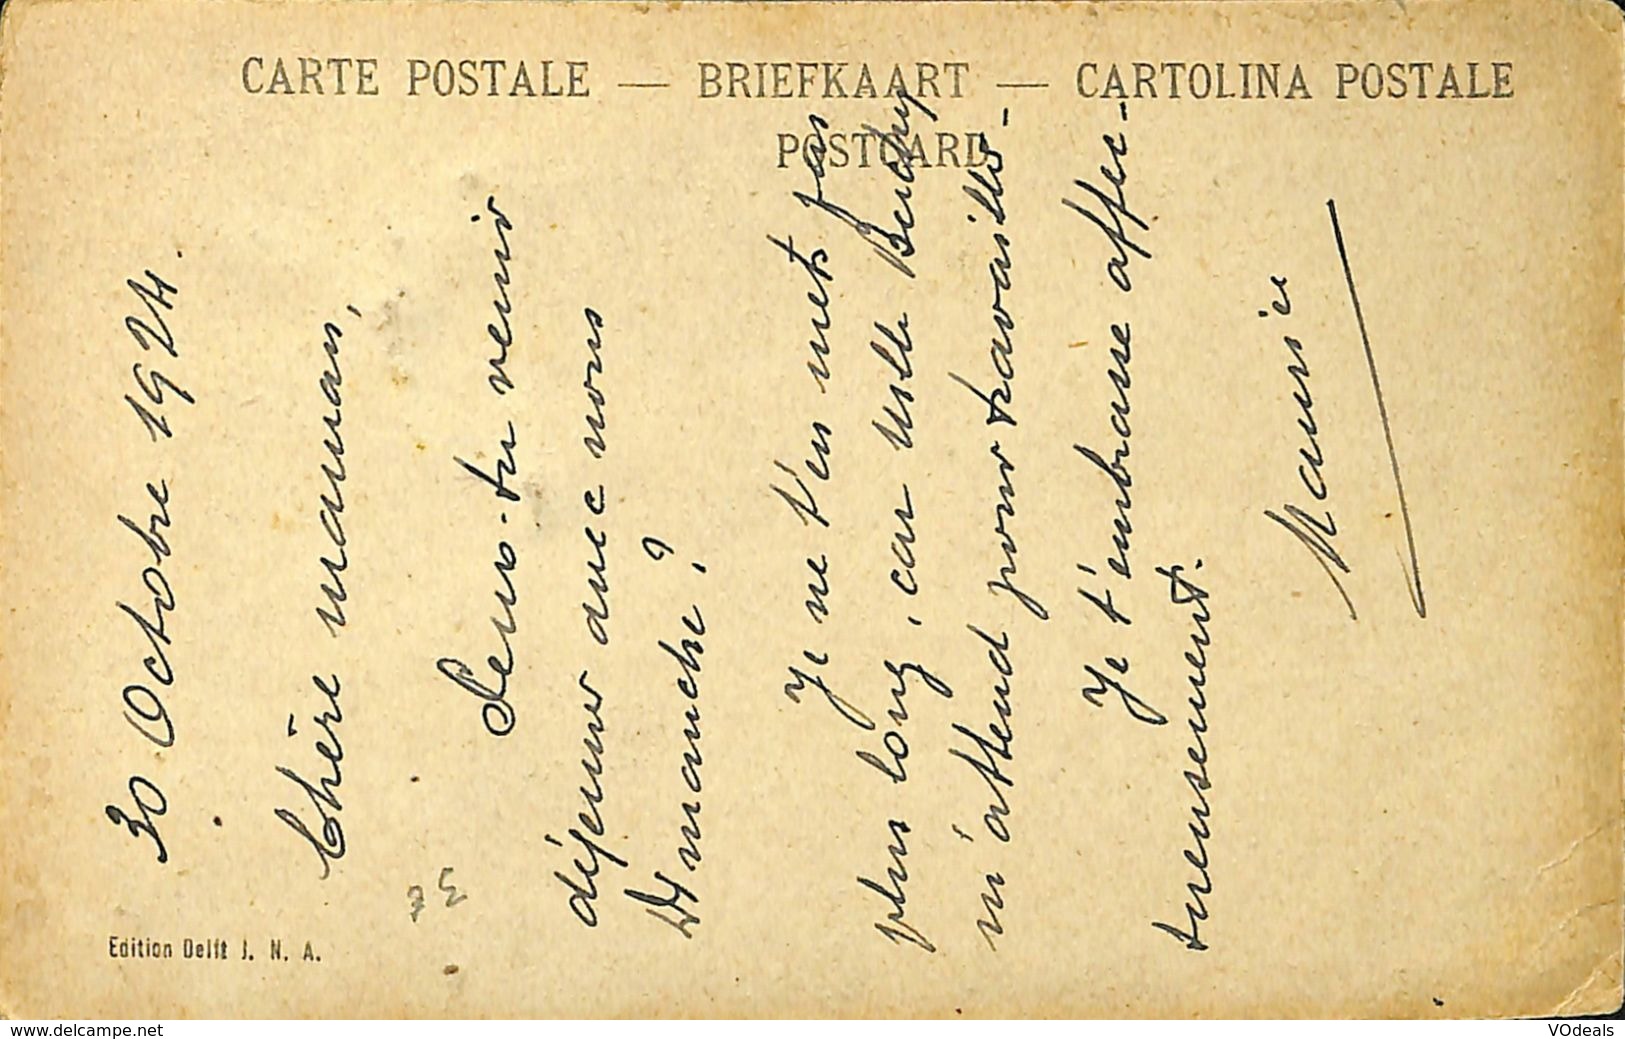 CARTE POSTALE — BRIEFKAART — CARTOLINA POSTALE
POSTCARD
30 Octobre 1924.
Chère maman,
Peux-tu venir
déjeuner avec nous
Dimanche?
Je ne t'en mets pas
plus long, car Melle
m'attend pour travailler -
Je t'embrasse affec-
tueusement.
Edition Delft J. N. A.
www.delcampe.net
VOdeals